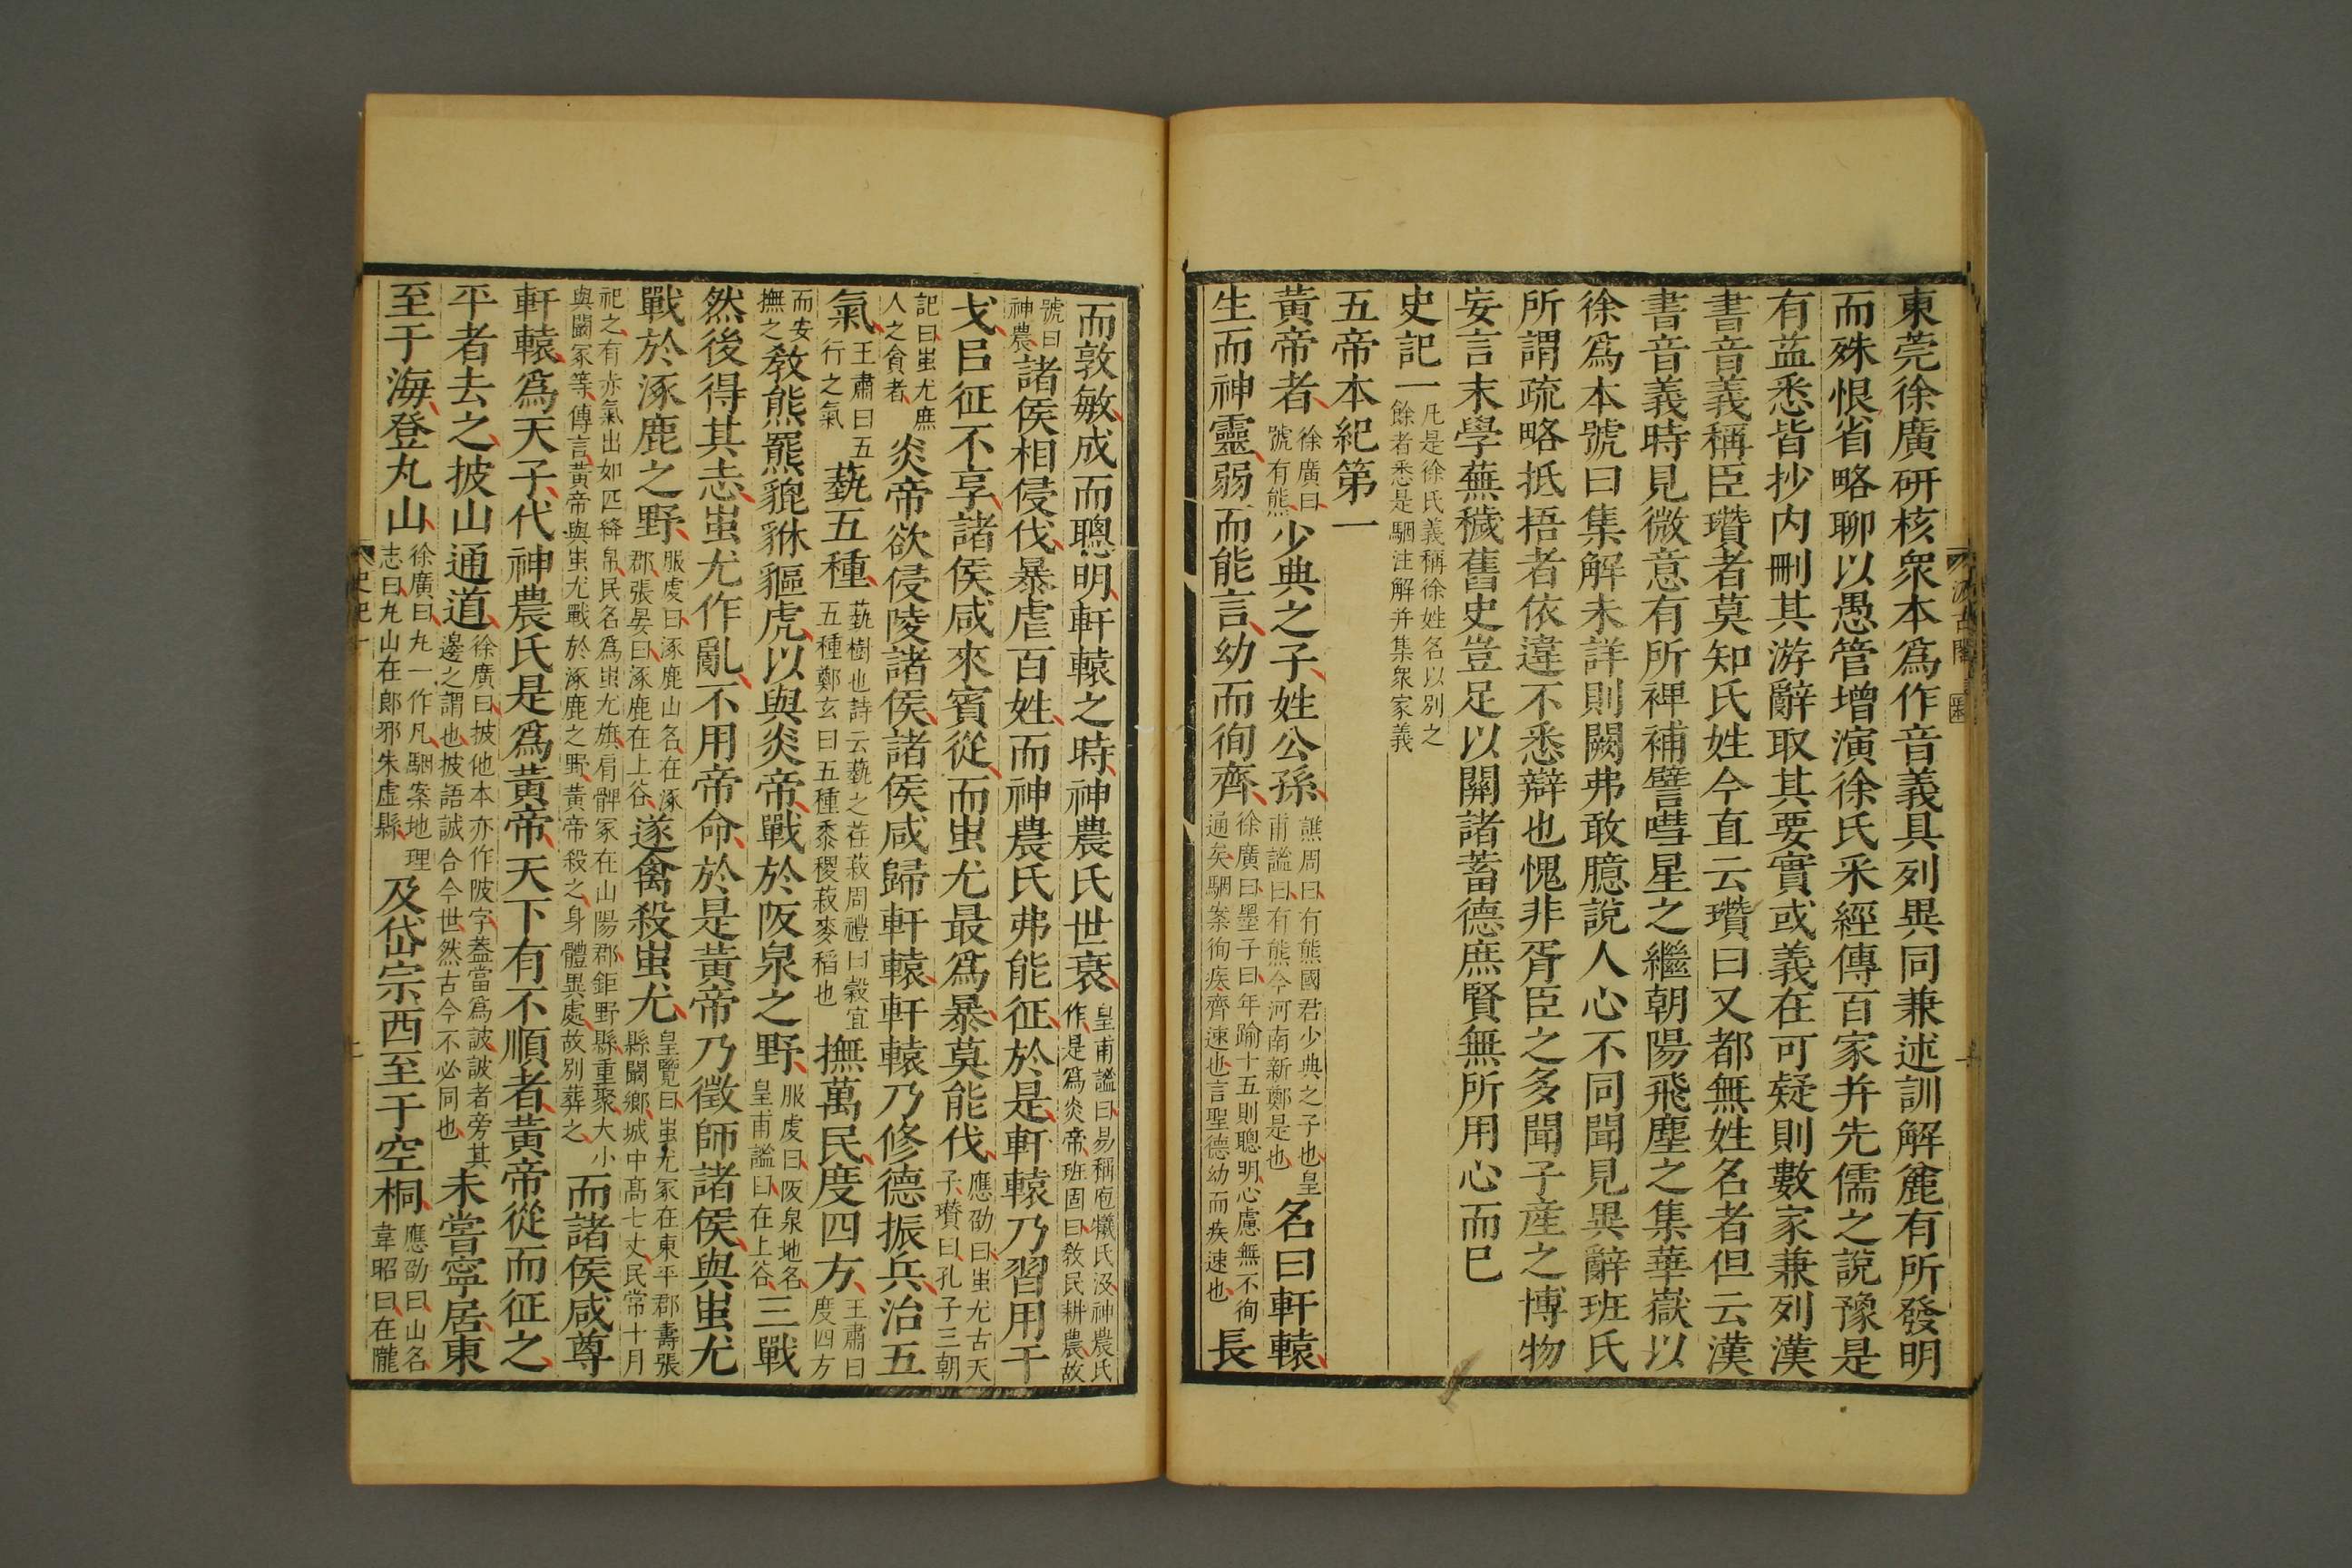 東莞徐廣研核眾本爲作音義具列異同兼述訓解麄有所發明
而殊恨省略聊以愚管增演徐氏采經傳百家并先儒之說豫是
有益悉皆抄內刪其游辭取其要實或義在可疑則數家兼列漢
書音義稱臣瓚者莫知氏姓今直云瓚曰又都無姓名者但云漢
書音義時見微意有所裨補譬嘒星之繼朝陽飛塵之集華嶽以
徐爲本號曰集解未詳則闕弗敢臆說人心不同聞見異辭班氏
所謂疏略抵捂者依違不悉辯也愧非胥臣之多聞子產之博物
妄言末學蕪穢舊史豈足以關諸蓄德庶賢無所用心而已
史記一
凡是徐氏義稱徐姓名以別之
餘者悉是駰注解并集眾家義
五帝本紀第一
黃帝者
徐廣曰
號有熊
少典之子姓公孫
譙周曰有熊國君少典之子也皇
甫謐曰有熊今河南新鄭是也
名曰軒轅
生而神靈弱而能言幼而徇齊
徐廣曰墨子曰年踰十五則聰明心慮無不徇
通矣駰案徇疾齊速也言聖德幼而疾速也
長
而敦敏成而聰明軒轅之時神農氏世衰
皇甫謐曰易稱庖犧氏没神農氏
作是爲炎帝班固曰教民耕農故
號曰
神農
諸侯相侵伐暴虐百姓而神農氏弗能征於是軒轅乃習用干
戈㠯征不享諸侯咸來賓從而蚩尤最爲暴莫能伐
應劭曰蚩尤古天
子瓚曰孔子三朝
記曰蚩尤庶
人之貪者
炎帝欲侵陵諸侯諸侯咸歸軒轅軒轅乃修德振兵治五
氣
王肅曰五
行之氣
蓺五種
蓺樹也詩云蓺之荏菽周禮曰穀宜
五種鄭玄曰五種黍稷菽麥稻也
撫萬民度四方
王肅曰
度四方
而安
撫之
教熊羆貔貅貙虎以與炎帝戰於阪泉之野
服虔曰阪泉地名
皇甫謐曰在上谷
三戰
然後得其志蚩尤作亂不用帝命於是黃帝乃徵師諸侯與蚩尤
戰於涿鹿之野
服虔曰涿鹿山名在涿
郡張晏曰涿鹿在上谷
遂禽殺蚩尤
皇覽曰蚩尤冢在東平郡壽張
縣闞鄉城中高七丈民常十月
祀之有赤氣出如匹絳帛民名爲蚩尤旗肩髀冢在山陽郡鉅野縣重聚大小
與闞冢等傳言黃帝與蚩尤戰於涿鹿之野黃帝殺之身體異處故別葬之
而諸侯咸尊
軒轅爲天子代神農氏是爲黃帝天下有不順者黃帝從而征之
平者去之披山通道
徐廣曰披他本亦作陂字蓋當爲詖詖者旁其
邊之謂也披語誠合今世然古今不必同也
未嘗寧居東
至于海登丸山
徐廣曰丸一作凡駰案地理
志曰丸山在郎邪朱虛縣
及岱宗西至于空桐
應劭曰山名
韋昭曰在隴
史記一
汲古閣